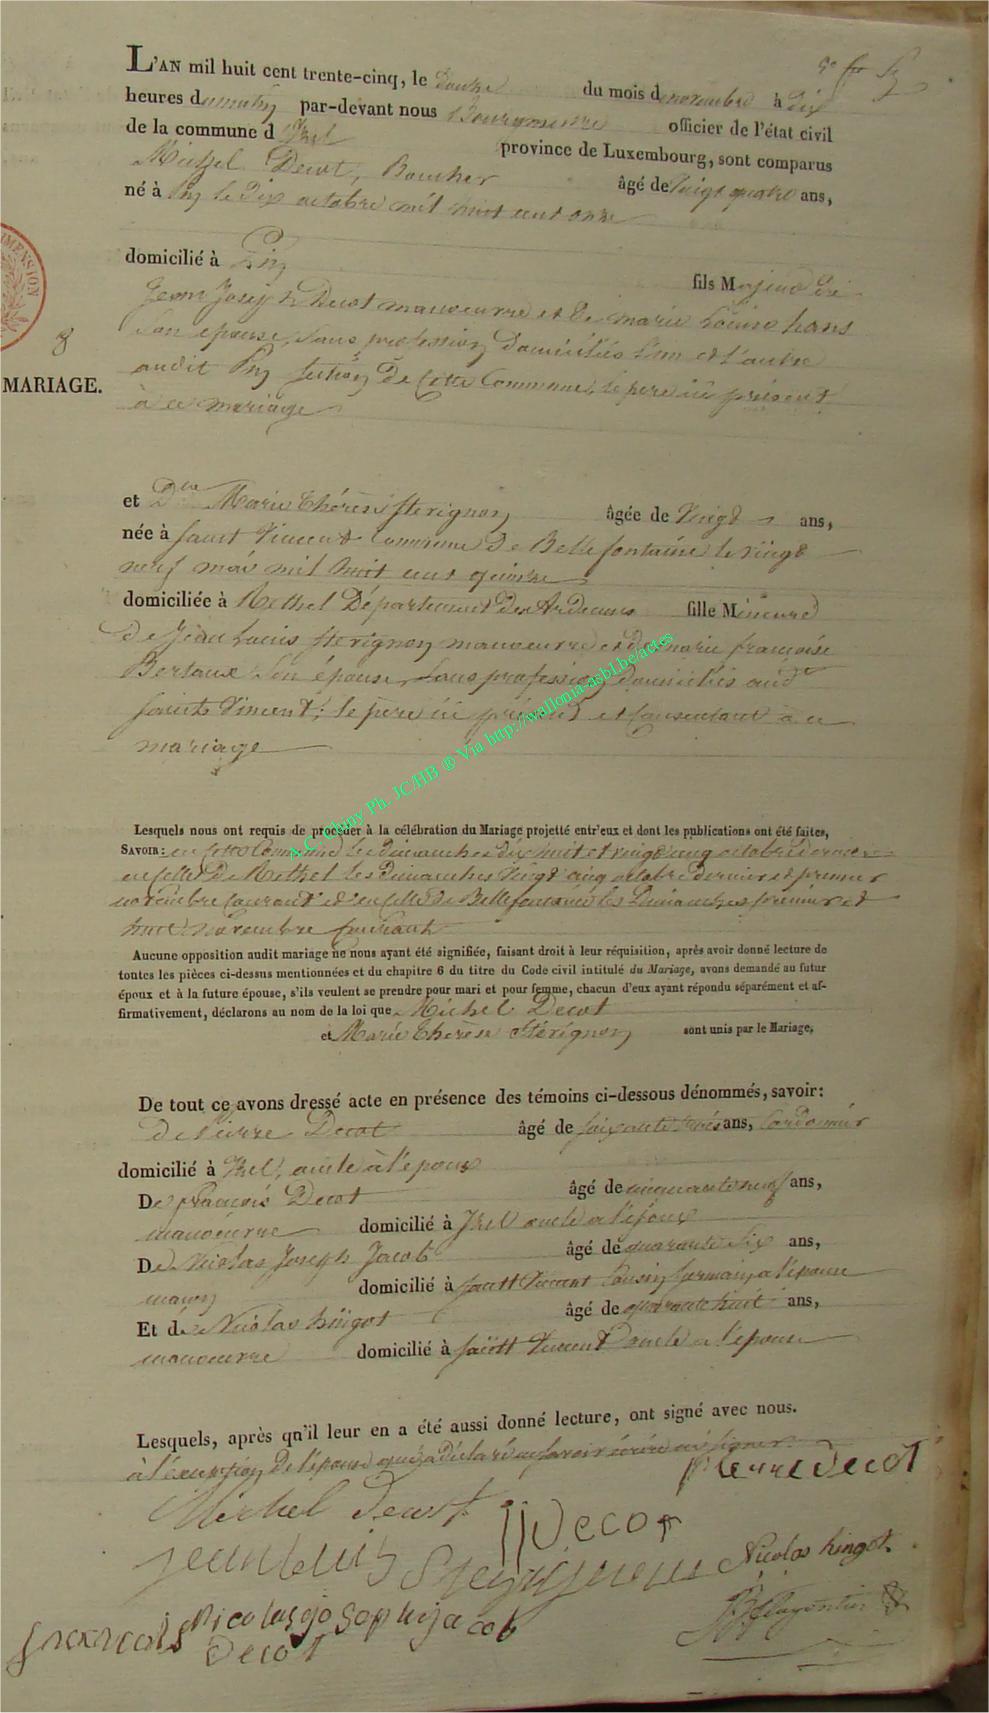 L'AN mil huit cent trente-cinq, le douze du mois de novembre à dix
heures du matin par-devant nous Bourgmestre officier de l'état civil
de la commune d'Izel province de Luxembourg, sont comparus
Michel Decot, Boucher âgé de vingt quatre ans,
né à Pin le dix octobre mil huit cent onze
domicilié à Pin fils Majeur de
Jean Joseph Decot manoeuvre et de marie Louise hans
Son epouse, Sans profession domiciliés l'un et l'autre
audit Pin Section de Cette Commune, le pere ici présent
à ce mariage
8
MARIAGE.
et Dlle Marie Thérèse Sterignon âgée de Vingt ans,
née à Saint Vincent Commune de Bellefontaine le vingt
neuf mai mil huit cent quinze
domiciliée à Rethel Département des Ardennes fille Mineure
de Jean Louis Sterignon manoeuvre et de marie françoise
Bertaux Son épouse, Sans profession domiciliés audt
Saint Vincent; le père ici présent et Consentant à ce
mariage
Lesquels nous ont requis de procéder à la célébration du Mariage projetté entr'eux et dont les publications ont été faites,
SAVOIR: en Cette Commune les dimanches dix huit et vingt cinq octobre dernier
en celle de Rethel les dimanches Vingt cinq octobre dernier et premier
novembre Courant et en celle de Bellefontaine les Dimanches premier et
huit novembre Courant
Aucune opposition audit mariage ne nous ayant été signifiée, faisant droit à leur réquisition, après avoir donné lecture de
toutes les pièces ci-dessus mentionnées et du chapitre 6 du titre du Code civil intitulé du Mariage, avons demandé au futur
époux et à la future épouse, s'ils veulent se prendre pour mari et pour femme, chacun d'eux ayant répondu séparément et af-
firmativement, déclarons au nom de la loi que Michel Decot
et Marie Therèse Stérignon sont unis par le Mariage,
De tout ce avons dressé acte en présence des témoins ci-dessous dénommés, savoir:
de Pierre Decot âgé de soixante trois ans, Cordonnier
domicilié à Izel, oncle à l'epoux
De françois Decot âgé de cinquante neuf ans,
manoeuvre domicilié à Izel oncle a l'époux
De Nicolas Joseph Jacob âgé de quarante six ans,
maçon domicilié à Saint Vincent Cousin Germain a l'épouse
Et de Nicolas hingot âgé de quarante huit ans,
manoeuvre domicilié à Saint Vincent oncle a l'épouse
Lesquels, après qu'il leur en a été aussi donné lecture, ont signé avec nous.
à l'exception de l'épouse qui a déclaré ne savoir écrire ni signer.
Pierre decot
Michel Decot
JJ Decot
Jean Louis
Nicolas hingot
Nicolas joseph jacob
francois Decot
A.C. Chiny Ph. JC/HB ® Via http://wallonia-asbl.be/actes